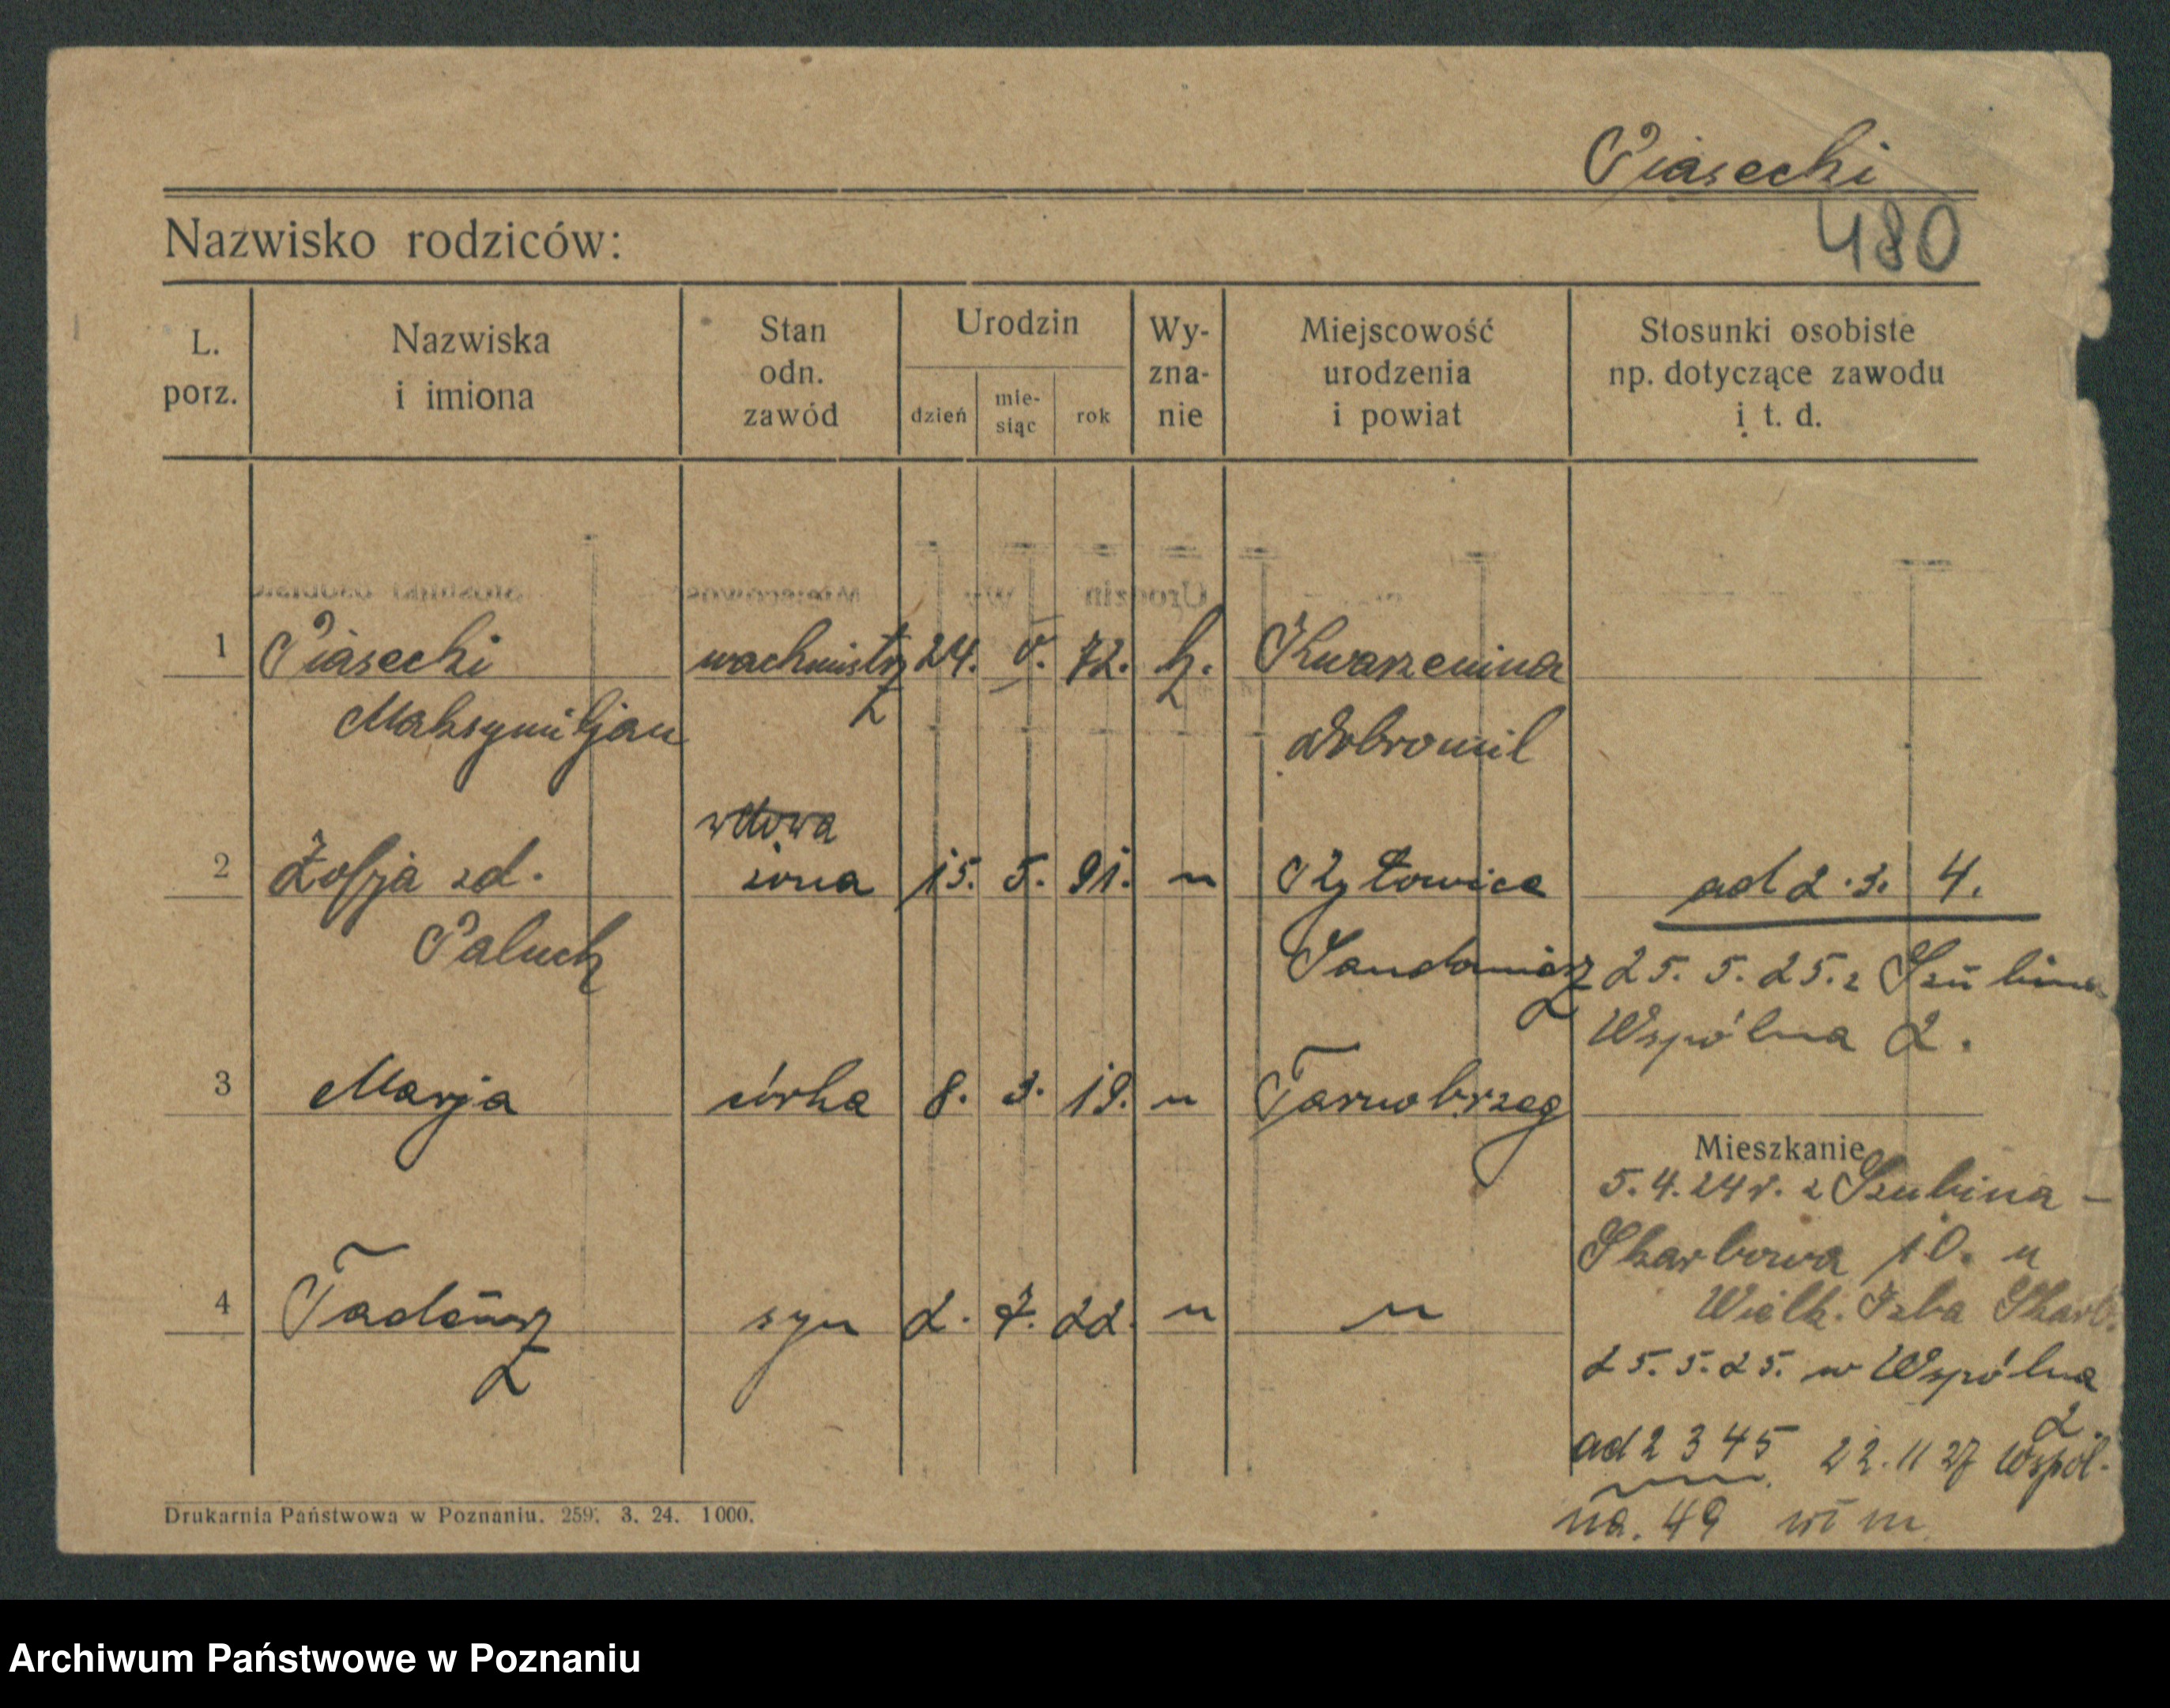 Piasecki
Nazwisko rodziców:
480
L. porz.
Nazwiska i imiona
Stan odn. zawód
Urodzin
dzień
mie-
siąc
rok
Wy-
zna-
nie
Miejscowość urodzenia i powiat
Stosunki osobiste np. dotyczące zawodu i t. d.
1 Piasecki wachmistrz 24. V. 72. k.
Maksymiljan Dobromil
wdowa
2 Zofja zd. żona 15. 5. 91. " ad 2. 3. 4.
Paluch Sandomierz 25. 5. 25. z Szubina
Wspólna 2.
3 Marja córka 8. 3. 19. " Tarnobrzeg
Mieszkanie
5. 4. 24 r. z Szubina -
Skarbowa 10. u
Wielk. Izba Skarb.
4 Tadeusz syn 2. 7. 22. " "
25. 5. 25. w Wspólna
2.
ad 2 3 4 5 22. 11 27 Wspól-
na. 49 m
Drukarnia Państwowa w Poznaniu. 259. 3. 24. 1000.
Archiwum Państwowe w Poznaniu